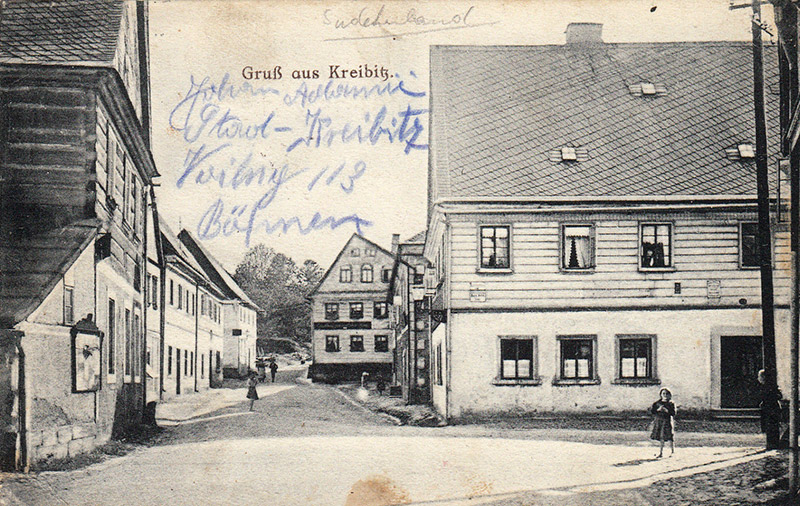 Sudetenland
Gruß aus Kreibitz.
Johan Adanni
Stad-Kreibitz
113
Böhmen